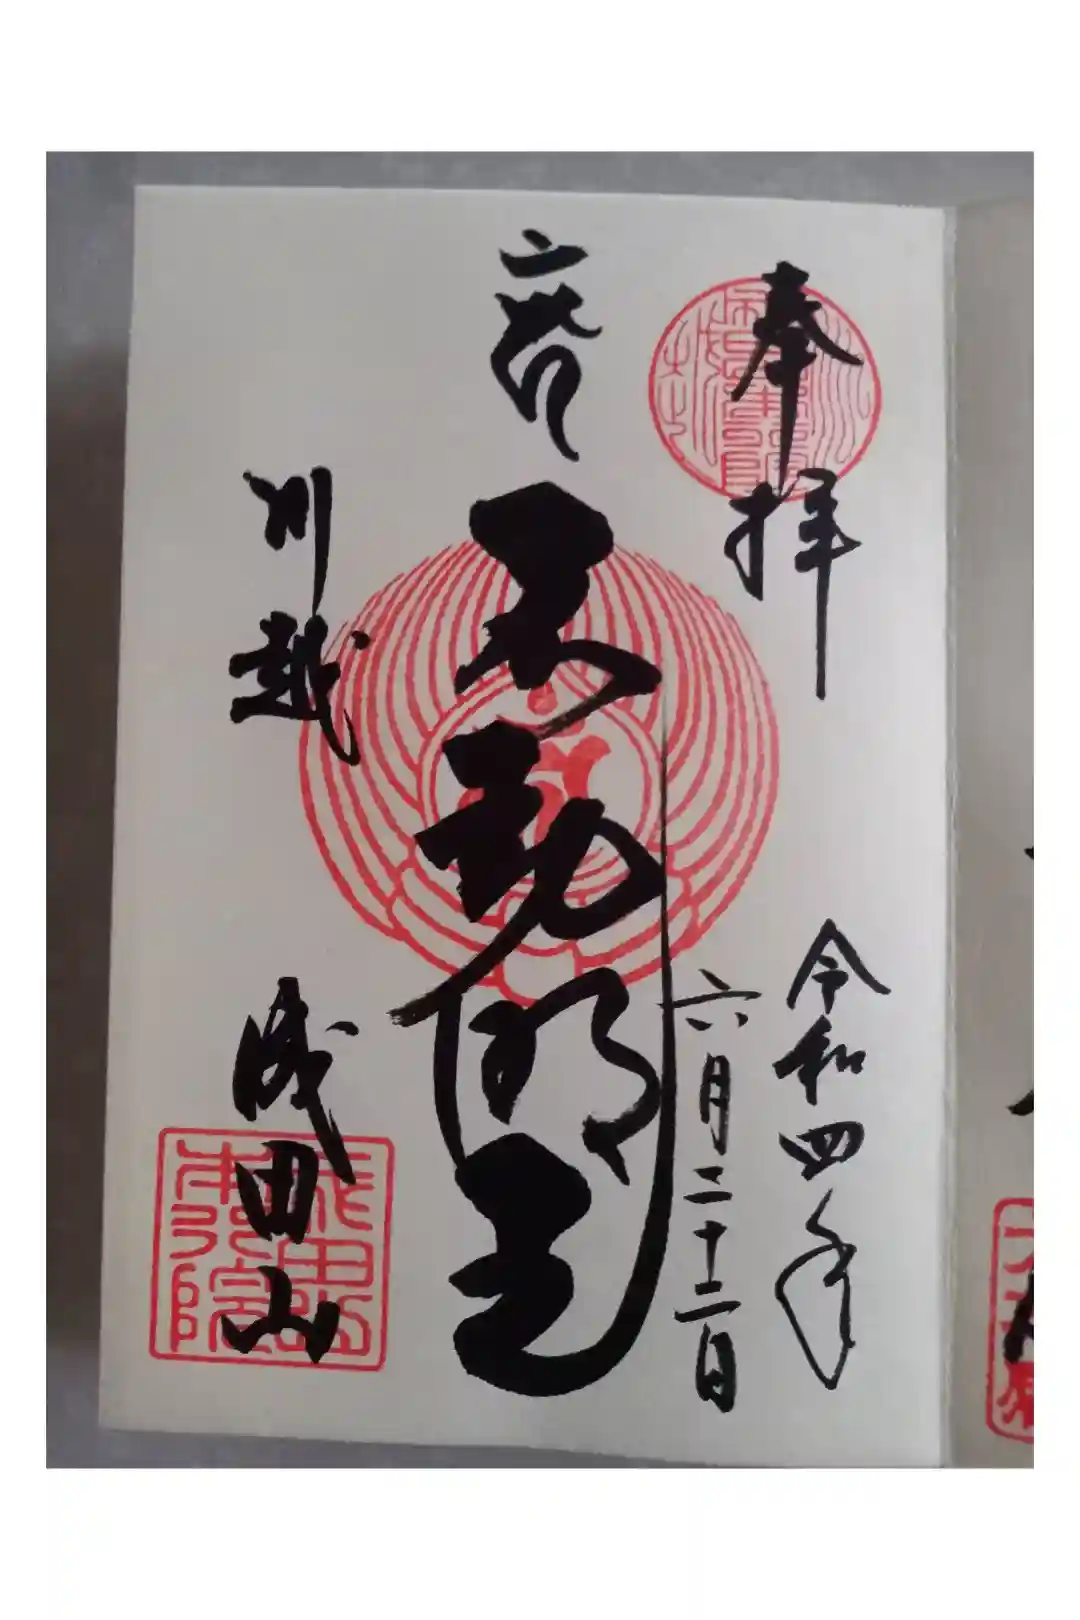 奉拝
令和四年
六月二十二日
不動明王
川越
成田山
成田山
本行院